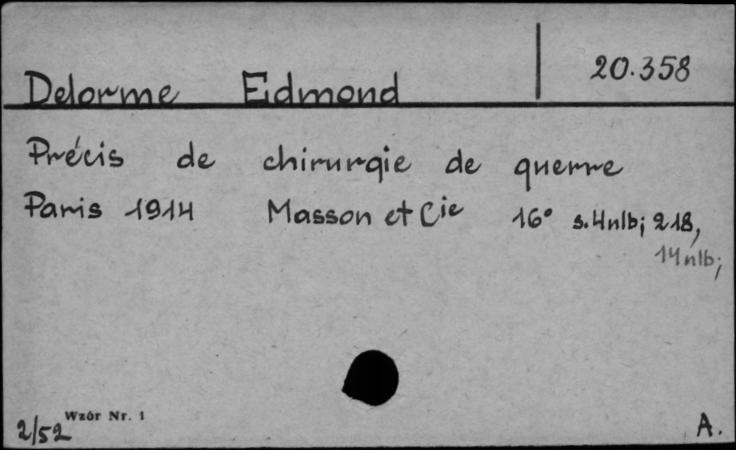 Delorme Edmond 20.358
Précis de chirurgie de guerre
Paris 1914 Masson et Cie 16° s. 4nlb; 218,
14nlb;
Wzór Nr. 1
2/52 A.